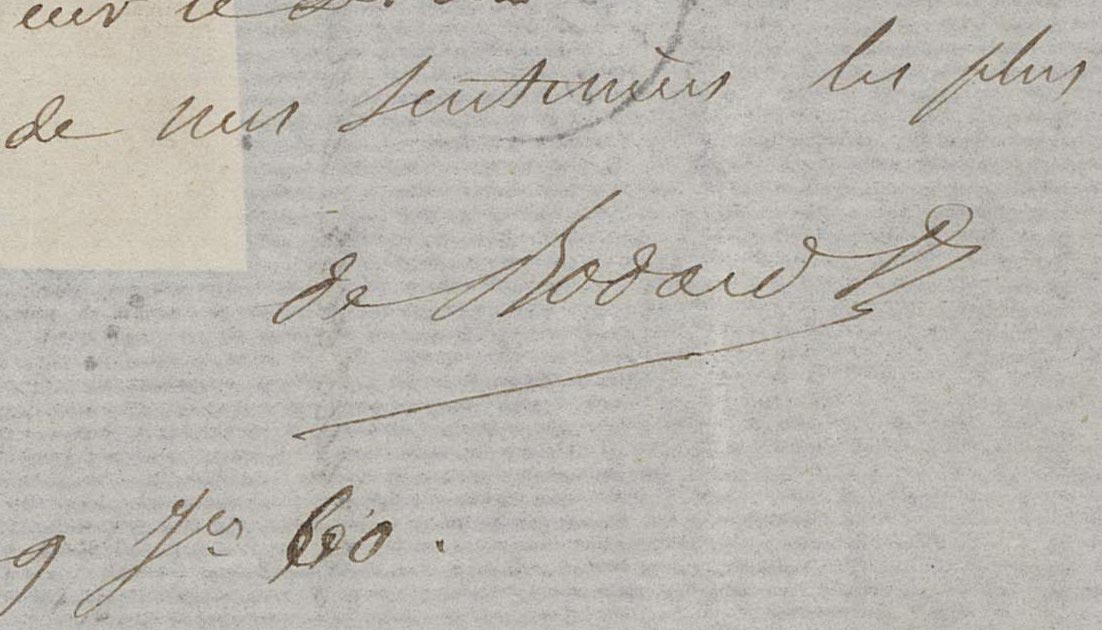 de mes sentiments les plus
de Rodard
9 Jer 60.